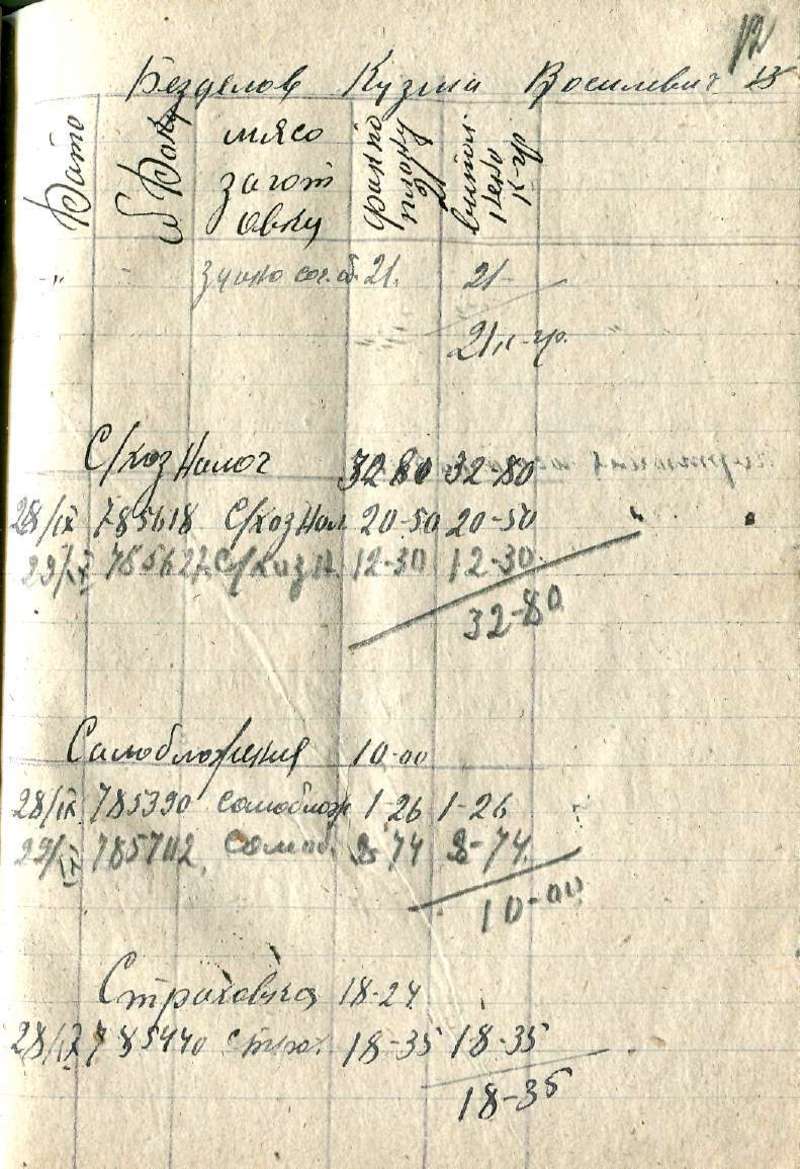 12
Безделов Кузма Восилевич 13
Дато
мясо
загот
овку
21. 21-
21 к-гр.
С/хоз Налог 32-80 32-80
28/IX 785618 С/хоз Нал 20-50 20-50
29/IX 785627 С/хоз Н. 12-30 12-30
32-80
Самобложения 10-00
28/IX 785390 самоблож 1-26 1-26
29/IX 785702 самоб. 8-74 8-74
10-00
Страховка 18-24
28/IX 785440 страх. 18-35 18-35
18-35